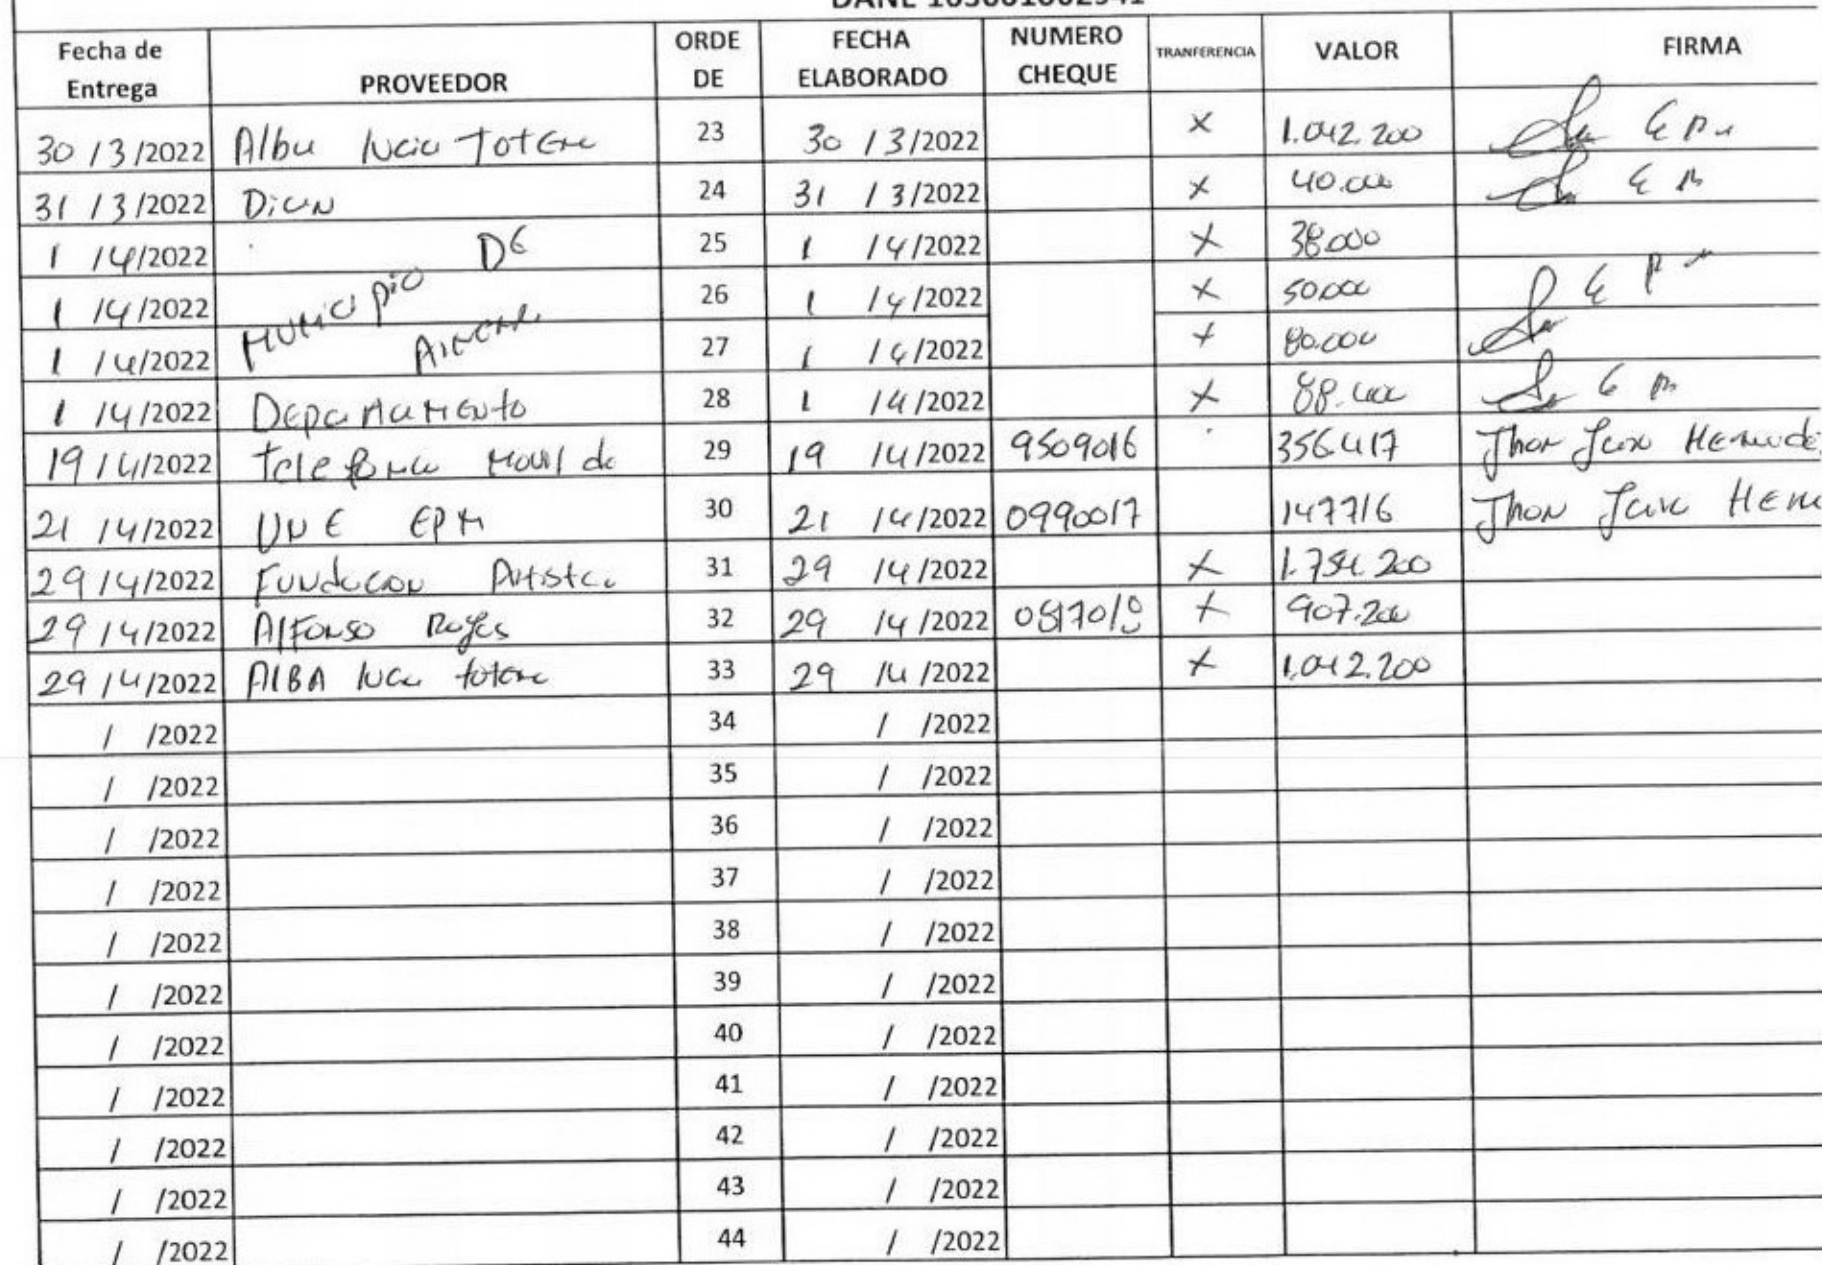 Fecha de Entrega PROVEEDOR ORDE DE FECHA ELABORADO NUMERO CHEQUE TRANFERENCIA VALOR FIRMA
30 / 3 /2022 Alba lucia 23 30 / 3/2022 X 1.042.200
31 / 3 /2022 Dian 24 31 / 3/2022 X 40.000
1 /4/2022 MUNICIPIO DE 25 1 /4/2022 X 38.000
1 /4/2022 26 1 /4/2022 X 50.000
1 /4/2022 27 1 /4/2022 X 80.000
1 /4/2022 Departamento 28 1 /4/2022 X
19 /4/2022 Telefonica Movil de 29 19 /4/2022 9509016 356417 Jhon
21 /4/2022 UNE EPM 30 21 /4/2022 0990017 147716 Jhon
29 /4/2022 Fundacion Artistca 31 29 /4/2022 X 1.754.200
29 /4/2022 Alfonso 32 29 /4/2022 X 907.200
29 /4/2022 AlBA lucia 33 29 /4/2022 X 1.042.200
/ /2022 34 / /2022
/ /2022 35 / /2022
/ /2022 36 / /2022
/ /2022 37 / /2022
/ /2022 38 / /2022
/ /2022 39 / /2022
/ /2022 40 / /2022
/ /2022 41 / /2022
/ /2022 42 / /2022
/ /2022 43 / /2022
/ /2022 44 / /2022